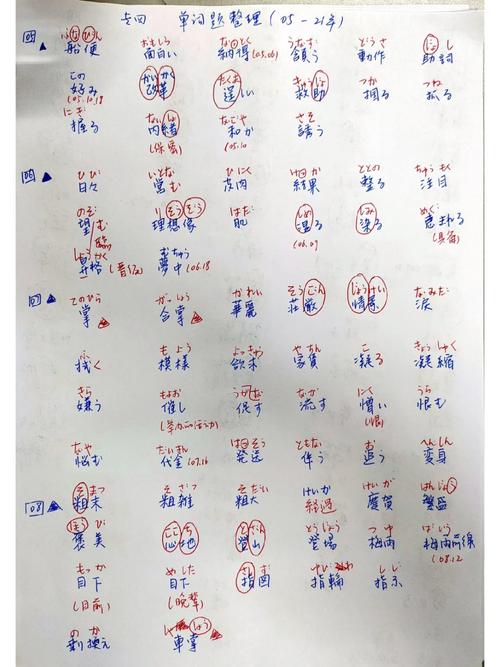 专四 单词题整理 (05-21年)
05 ふなびん おもしろ なっとく うなず どうさ じょし
船便 面白い 納得(05.06) 頷う 動作 助詞
この かいかく たくま きゅうじょ つか つね
好み(05.10,19) 改革 逞しい 救助 掴る 抓る
にぎ ないしょ なごや さそ
握る 内緒(保密) 和か(05.10 誘う
06 ▲ ひび いとな ひにく けっか ととの ちゅうもく
日々 営む 皮肉 結果 整る 注目
のぞ りそうぞう はだ しめ しみ めぐ
望む 臨 理想像 肌 湿る(06.09 染る 恵まれる(具备)
しょうかく むちゅう
昇格(晋级) 夢中(06.18
07 ▲ てのひら がっしょう かれい そうごん じょうけい なみだ
掌 合掌 華麗 荘厳 情景 涙
ふ もよう よっきゅう やちん こ ぎょうしゅく
拭く 模様 欲求 家賃 凝る 凝縮
きら もよお うなが なが にく うら
嫌う 催し 促す 流す 憎い(恨) 恨む
なや だいきん はっそう ともな お へんしん
悩む 代金(07.16 発送 伴う 追う 変身
08 ▲ そまつ そざつ そだい けいか けいが はんじょう
粗末 粗雑 粗大 経過 慶賀 繁盛
ほうび ここち とざん とうじょう つゆ
褒美 心地 登山 登場 梅雨 梅雨前線(08.12
もっか めした しず ゆびわ しじ
目下(目前) 目下(晚辈) 指図 指輪 指示
のか しゃしょう
剰換え 車掌